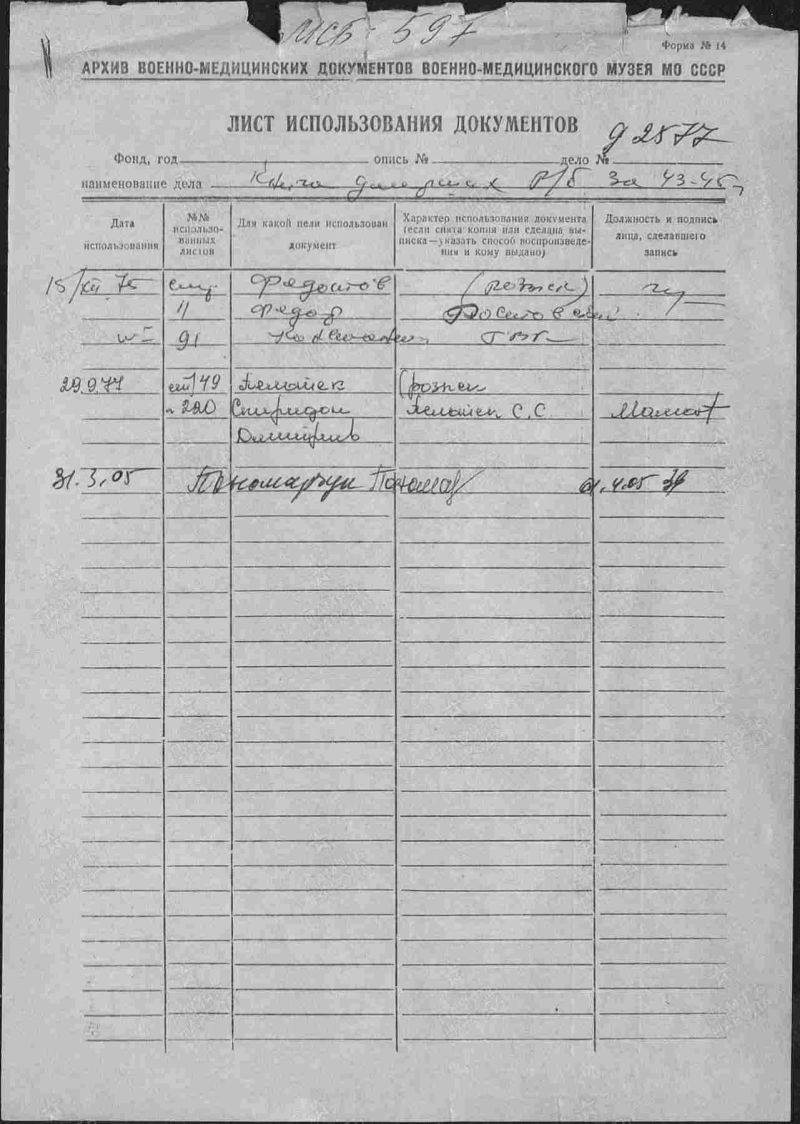 МСБ-597
Форма № 14
АРХИВ ВОЕННО-МЕДИЦИНСКИХ ДОКУМЕНТОВ ВОЕННО-МЕДИЦИНСКОГО МУЗЕЯ МО СССР
ЛИСТ ИСПОЛЬЗОВАНИЯ ДОКУМЕНТОВ
д 2877
Фонд, год опись № дело №
наименование дела Книга умерших р/б за 43-45г
Дата использования
№№ использованных листов
Для какой цели использован документ
Характер использования документа (если снята копия или сделана выписка—указать способ воспроизведения и кому выдано)
Должность и подпись лица, сделавшего запись
15/XII 75 Федотов (розыск)
" Федор
91
29.9.77 149 (розыск
" 220 Спиридон С.С.
Дмитриев
31.3.05 Пономарчук 01.4.05